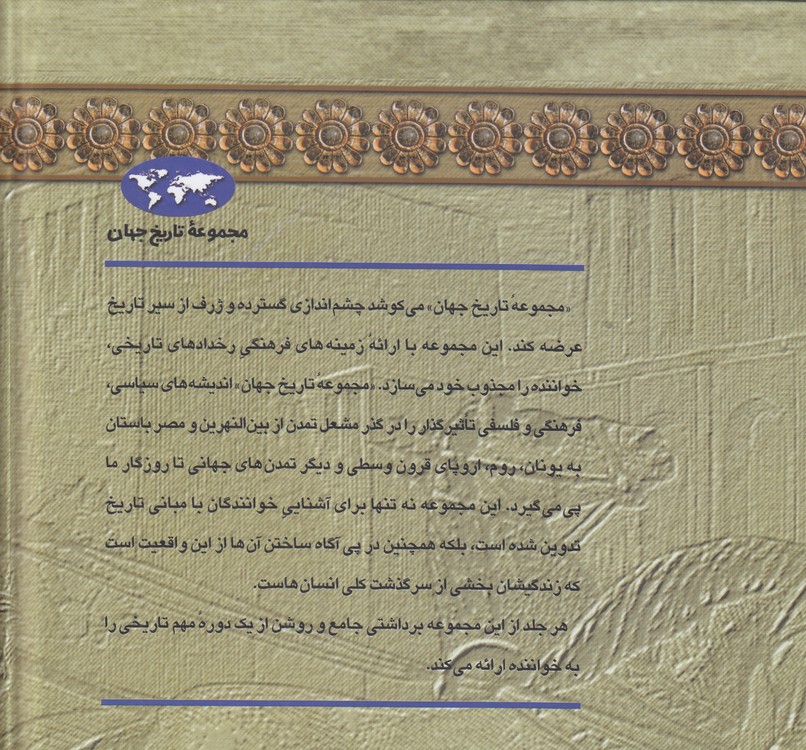 مجموعهٔ تاریخ جهان
«مجموعهٔ تاریخ جهان» می‌کوشد چشم‌اندازی گسترده و ژرف از سیر تاریخ
عرضه کند. این مجموعه با ارائهٔ زمینه‌های فرهنگی رخدادهای تاریخی،
خواننده را مجذوب خود می‌سازد. «مجموعهٔ تاریخ جهان» اندیشه‌های سیاسی،
فرهنگی و فلسفی تأثیرگذار را در گذر مشعل تمدن از بین‌النهرین و مصر باستان
به یونان، روم، اروپای قرون وسطی و دیگر تمدن‌های جهانی تا روزگار ما
پی می‌گیرد. این مجموعه نه تنها برای آشنایی خوانندگان با مبانی تاریخ
تدوین شده است، بلکه همچنین در پی آگاه ساختن آن‌ها از این واقعیت است
که زندگیشان بخشی از سرگذشت کلی انسان‌هاست.
هر جلد از این مجموعه برداشتی جامع و روشن از یک دورهٔ مهم تاریخی را
به خواننده ارائه می‌کند.